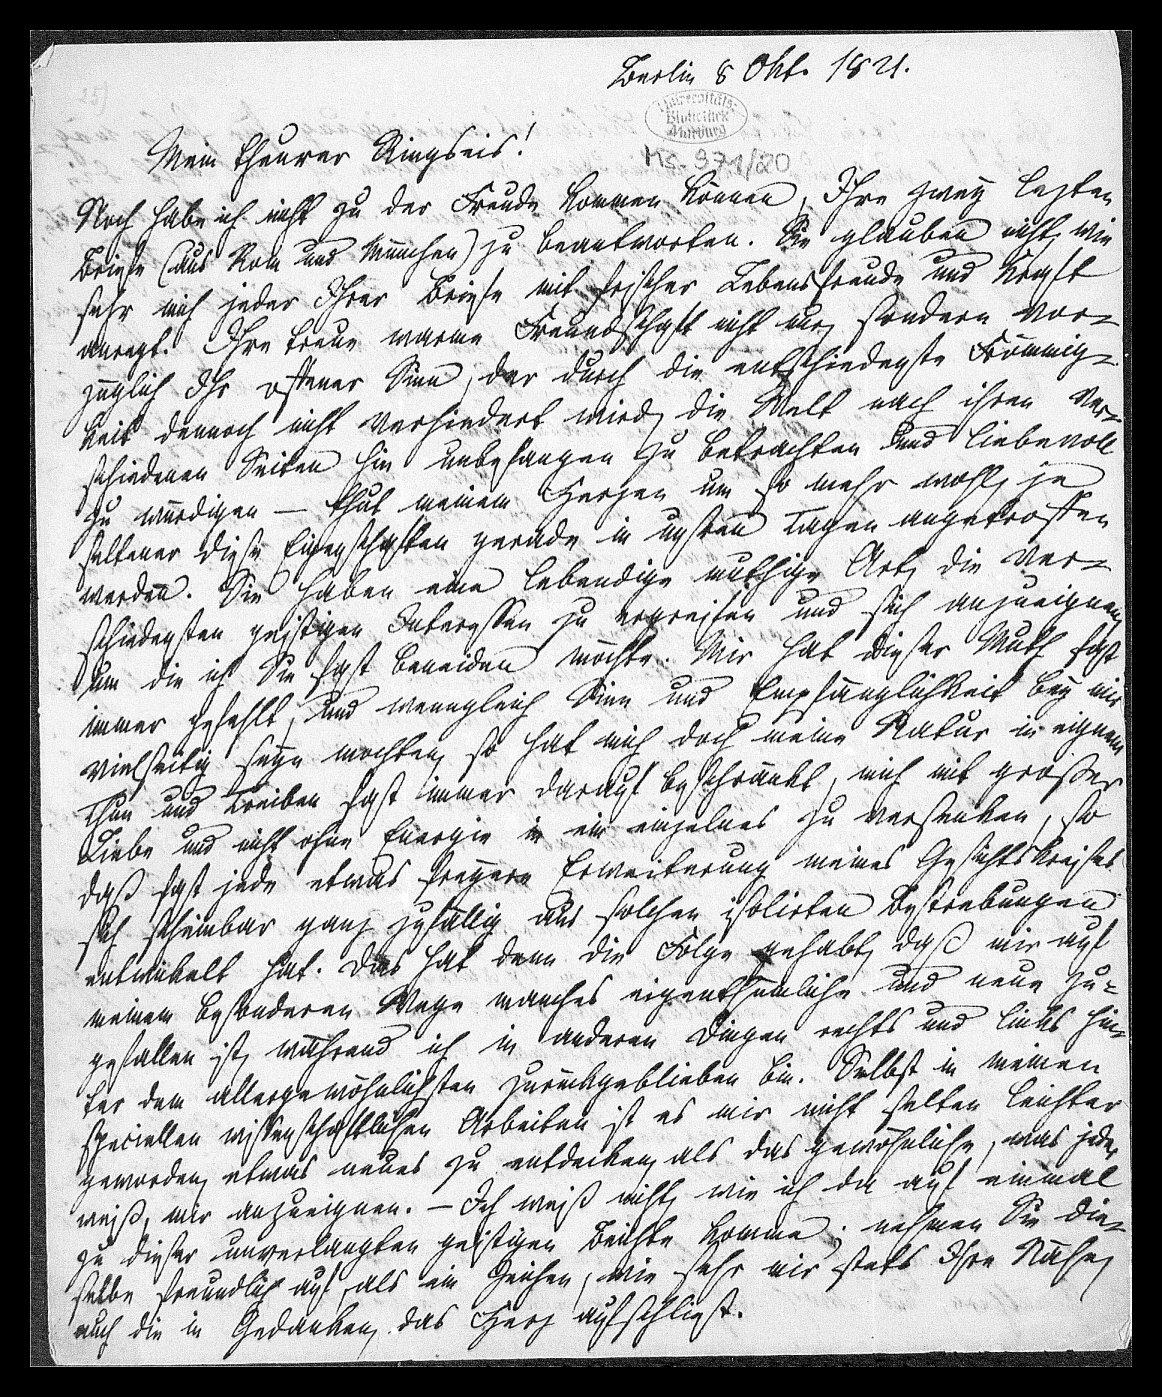 Berlin 8 Okt. 1821.
Universitäts-
Bibliothek
Marburg
Ms. 971/20
Mein theurer Ringseis!
Noch habe ich nicht zu der Freude kommen können, Ihre zwey lezten
Briefe (aus Rom und München) zu beantworten. Sie glauben nicht, wie
sehr mich jeder Ihrer Briefe mit frischer Lebensfreude und Kraft
anregt. Ihre treue warme Freundschaft nicht nur, sondern vor-
züglich Ihr offener Sinn, der durch die entschiedenste Frömmig-
keit dennoch nicht verhindert wird, die Welt nach ihren ver-
schiedenen Seiten hin unbefangen zu betrachten und liebevoll
zu würdigen — thut meinem Herzen um so mehr wohl, je
seltener diese Eigenschaften gerade in unsren Tagen angetroffen
werden. Sie haben eine lebendige muthige Art, die ver-
schiedensten geistigen Interessen zu ergreifen und sich anzueignen,
um die ich Sie fast beneiden möchte. Mir hat dieser Muth fast
immer gefehlt, und wenngleich Sinn und Empfänglichkeit bey mir
vielseitig seyn mochten, so hat mich doch meine Natur in eignem
Thun und Treiben fast immer darauf beschränkt, mich mit großer
Liebe und nicht ohne Energie in ein einzelnes zu versenken, so
daß fast jede etwas freyere Erweiterung meines Gesichtskreises
sich scheinbar ganz zufällig aus solchen isolirten Bestrebungen
entwickelt hat. Das hat denn die Folge gehabt, daß mir auf
meinem besonderen Wege manches eigenthümliche und neue zu-
gefallen ist, während ich in anderen Dingen rechts und links hin-
ter dem allergewöhnlichsten zurückgeblieben bin. Selbst in meinen
speciellen wissenschaftlichen Arbeiten ist es mir nicht selten leichter
geworden, etwas neues zu entdecken, als das gewöhnliche, was jeder
weiß, mir anzueignen. — Ich weiß nicht, wie ich da auf einmal
zu dieser unverlangten geistigen Beichte komme; nehmen Sie die-
selbe freundlich auf, als ein Zeichen, wie sehr mir stets Ihre Nähe,
auch die in Gedanken, das Herz aufschließt.